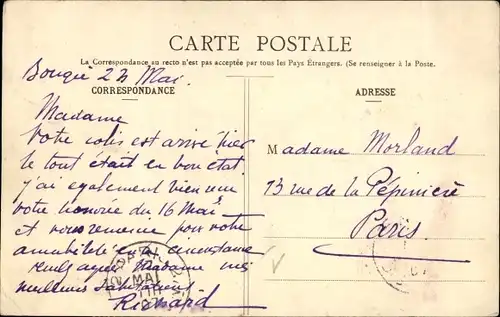 CARTE POSTALE
La Correspondance au recto n'est pas acceptée par tous les Pays Étrangers. (Se renseigner à la Poste.
Bougie 23 Mai.
CORRESPONDANCE
Madame
Votre colis est arrivé hier
le tout était en bon état.
j'ai également bien reçu
votre honorée du 16 Mai
et vous remercie pour votre
amabilité en la circonstance
Madame mes
meilleures salutations
Richard
MAI
ADRESSE
Madame Morland
13 rue de la Pépinière
Paris